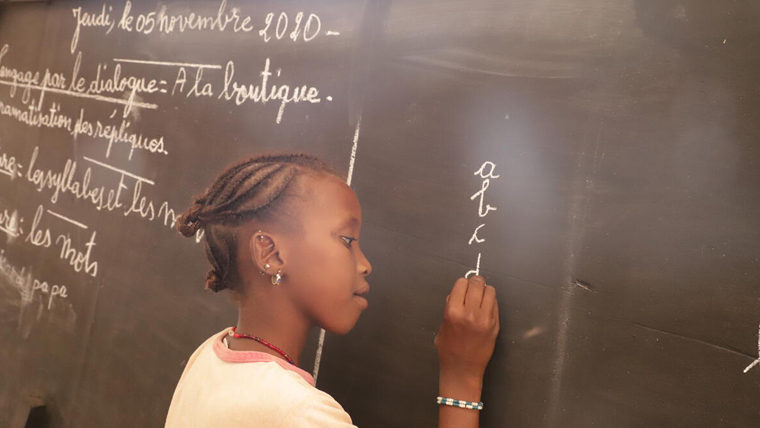 Jeudi, le 05 novembre 2020-
langage par le dialogue = A la boutique.
dramatisation des répliques.
= les syllabes et les m
= les mots
papa
a
b
c
d